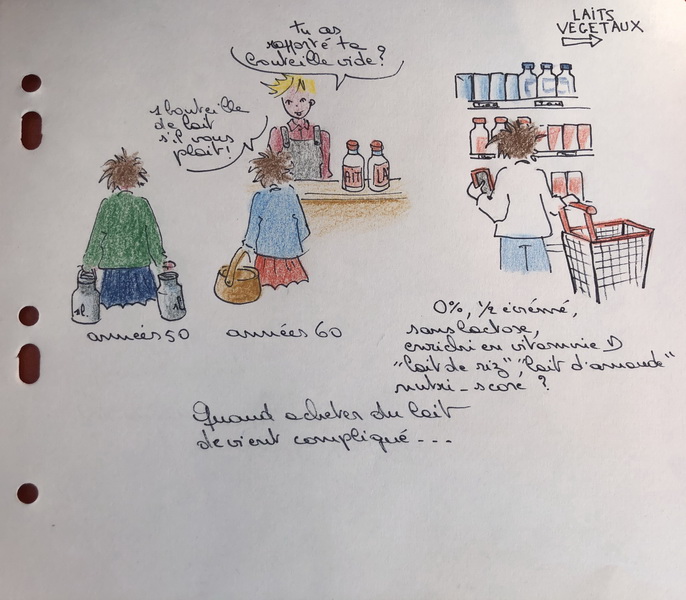 LAITS
VEGETAUX
tu as
rapporté ta
bouteille vide?
1 bouteille
de lait
s'il vous
plait!
LAIT
LA
années 50
années 60
0%, 1/2 écrémé,
sans lactose,
enrichi en vitamine D
"lait de riz", "lait d'amande"
nutri-score ?
Quand acheter du lait
devient compliqué ...